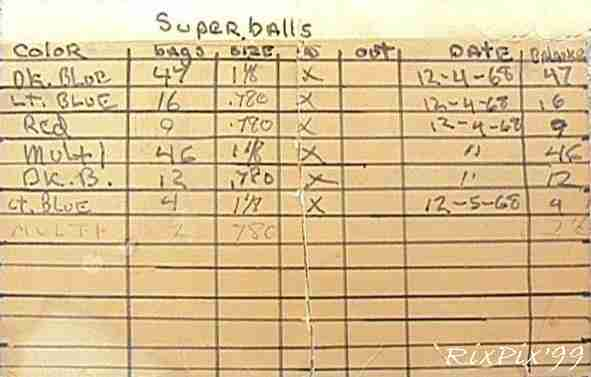 Super balls
COLOR bags SIZE IN OUT DATE Balance
DK. BLUE 47 1 1/8 X 12-4-68 47
LT. BLUE 16 .780 X 12-4-68 16
Red 9 .780 X 12-4-68 9
Multi 46 1 1/8 X " 46
DK. B. 12 .780 X " 12
LT. BLUE 4 1 1/8 X 12-5-68
MULTI 780
RixPix'99